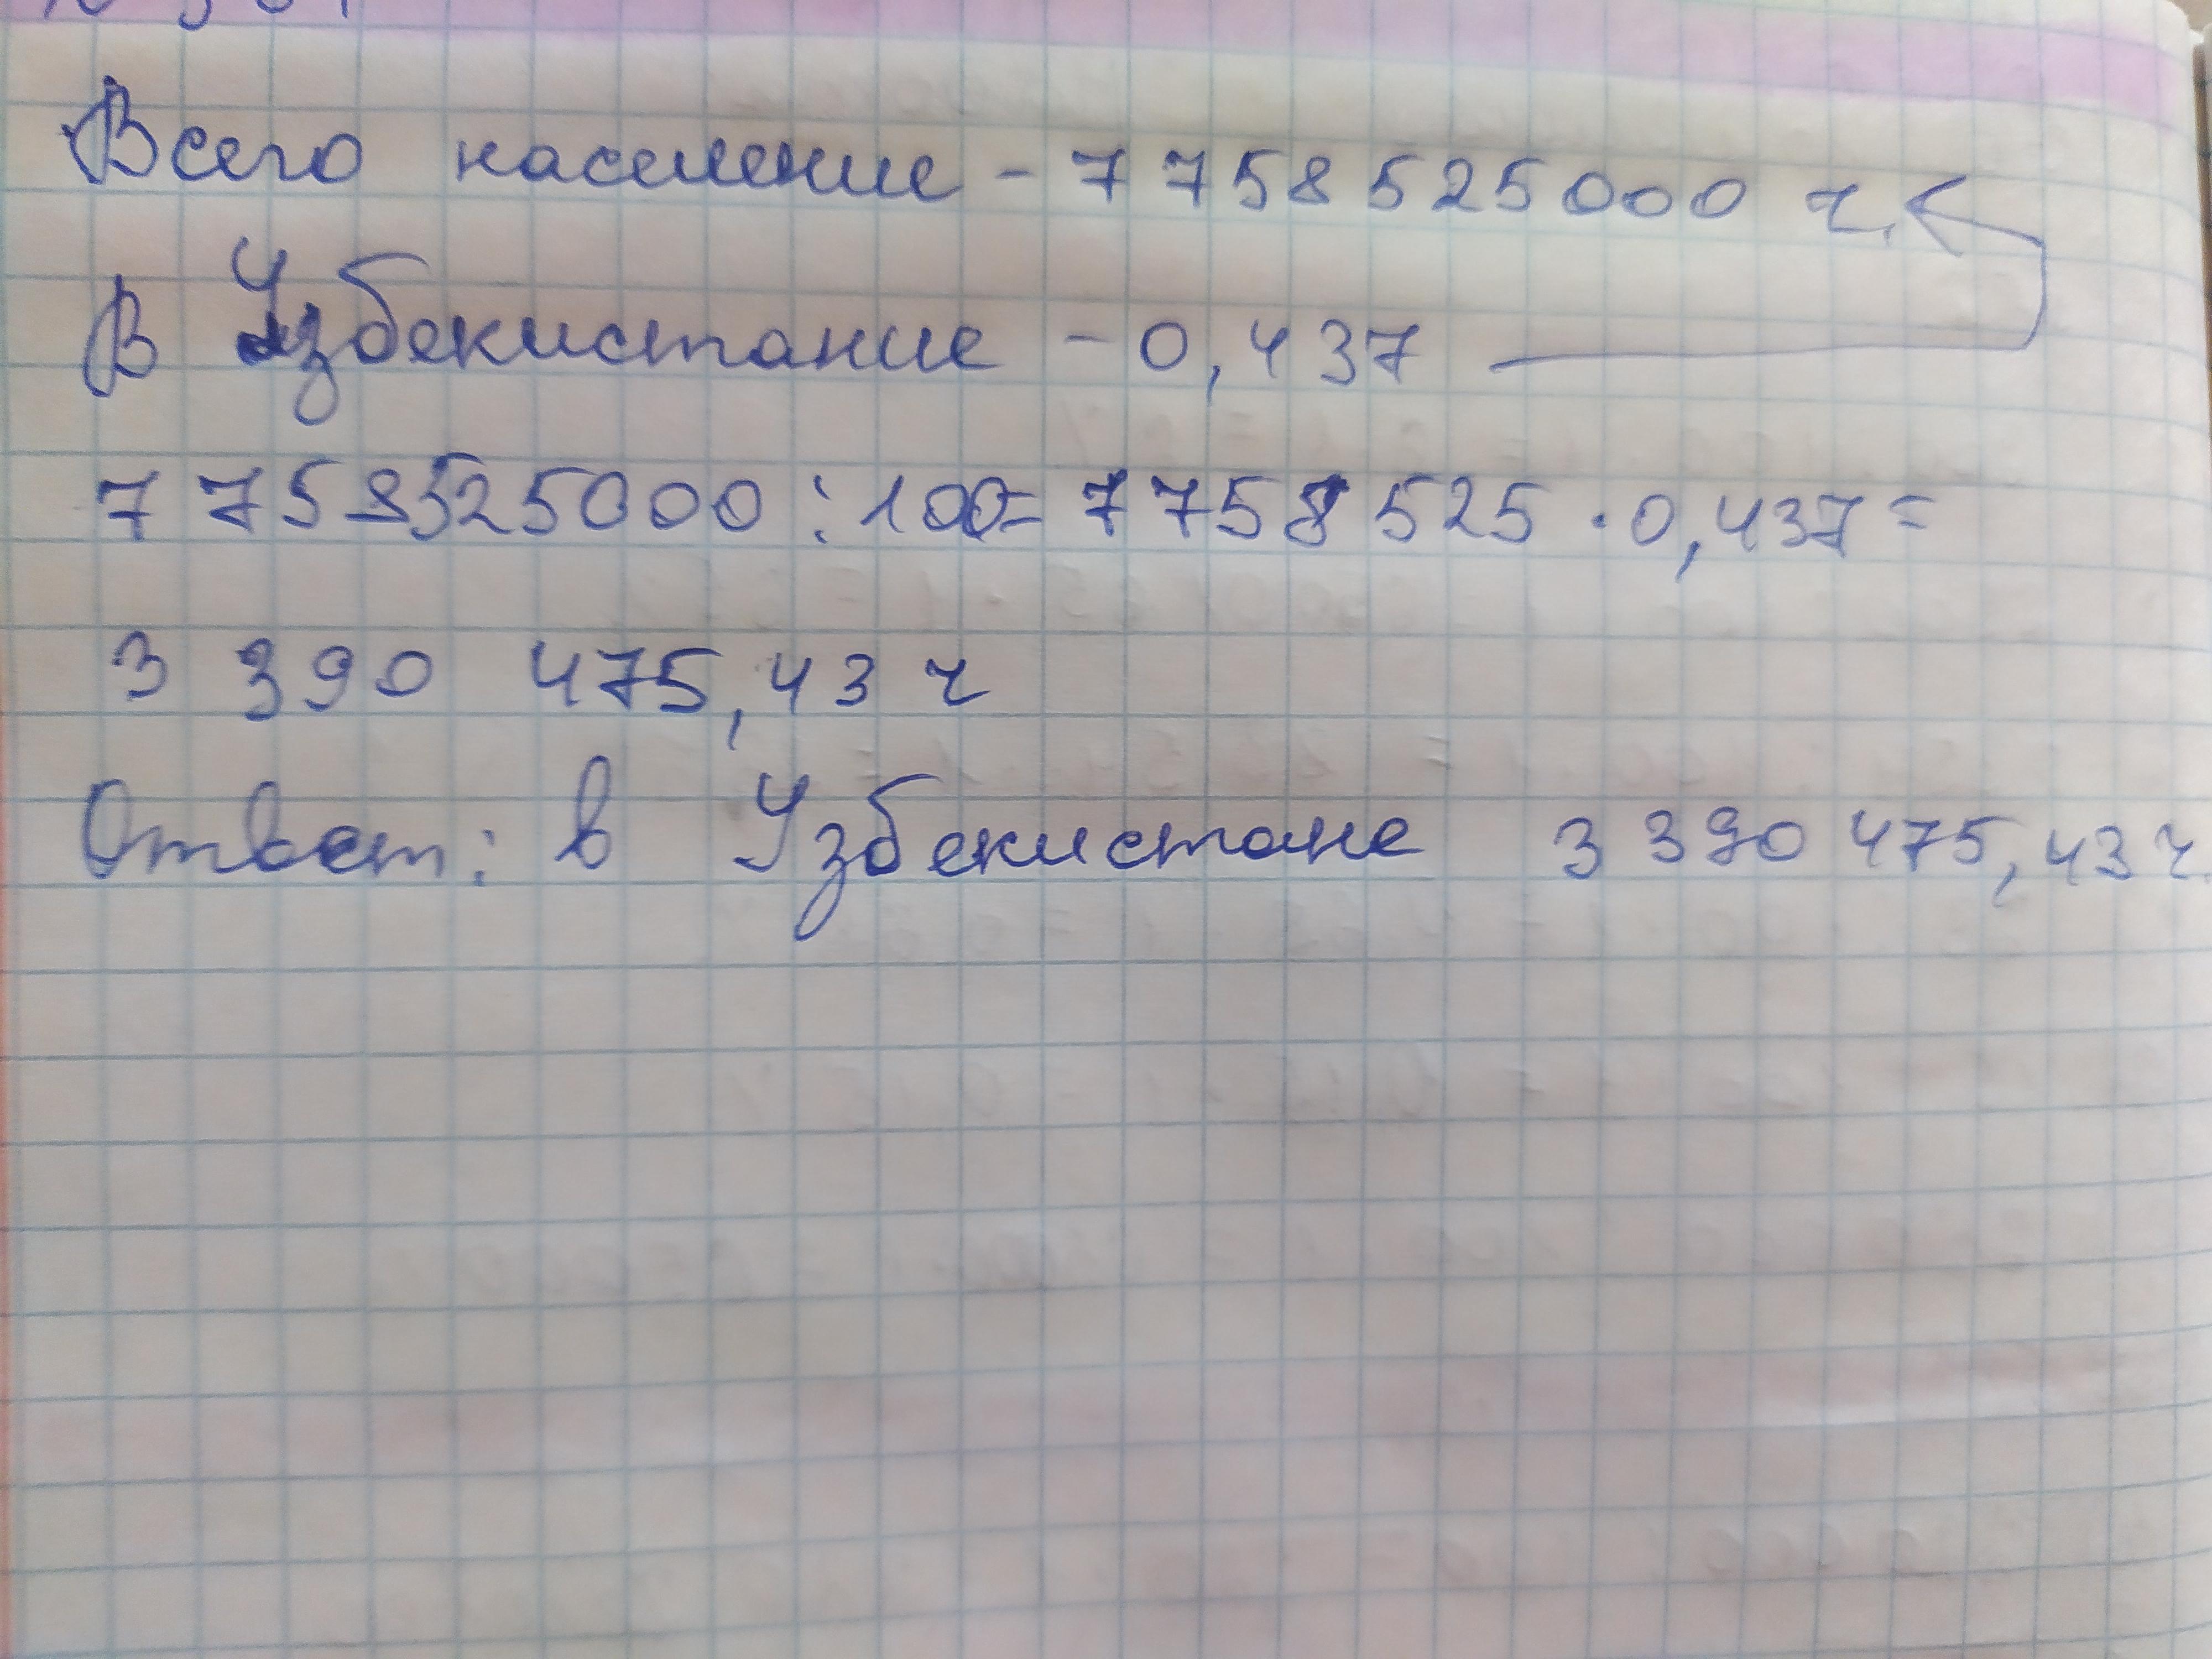 Всего население - 7 758 525 000 ч.
В Узбекистание - 0,437
7 758525000 : 100= 7 758 525 · 0,437 =
3 390 475,43 ч
Ответ: в Узбекистане 3 390 475,43 ч.